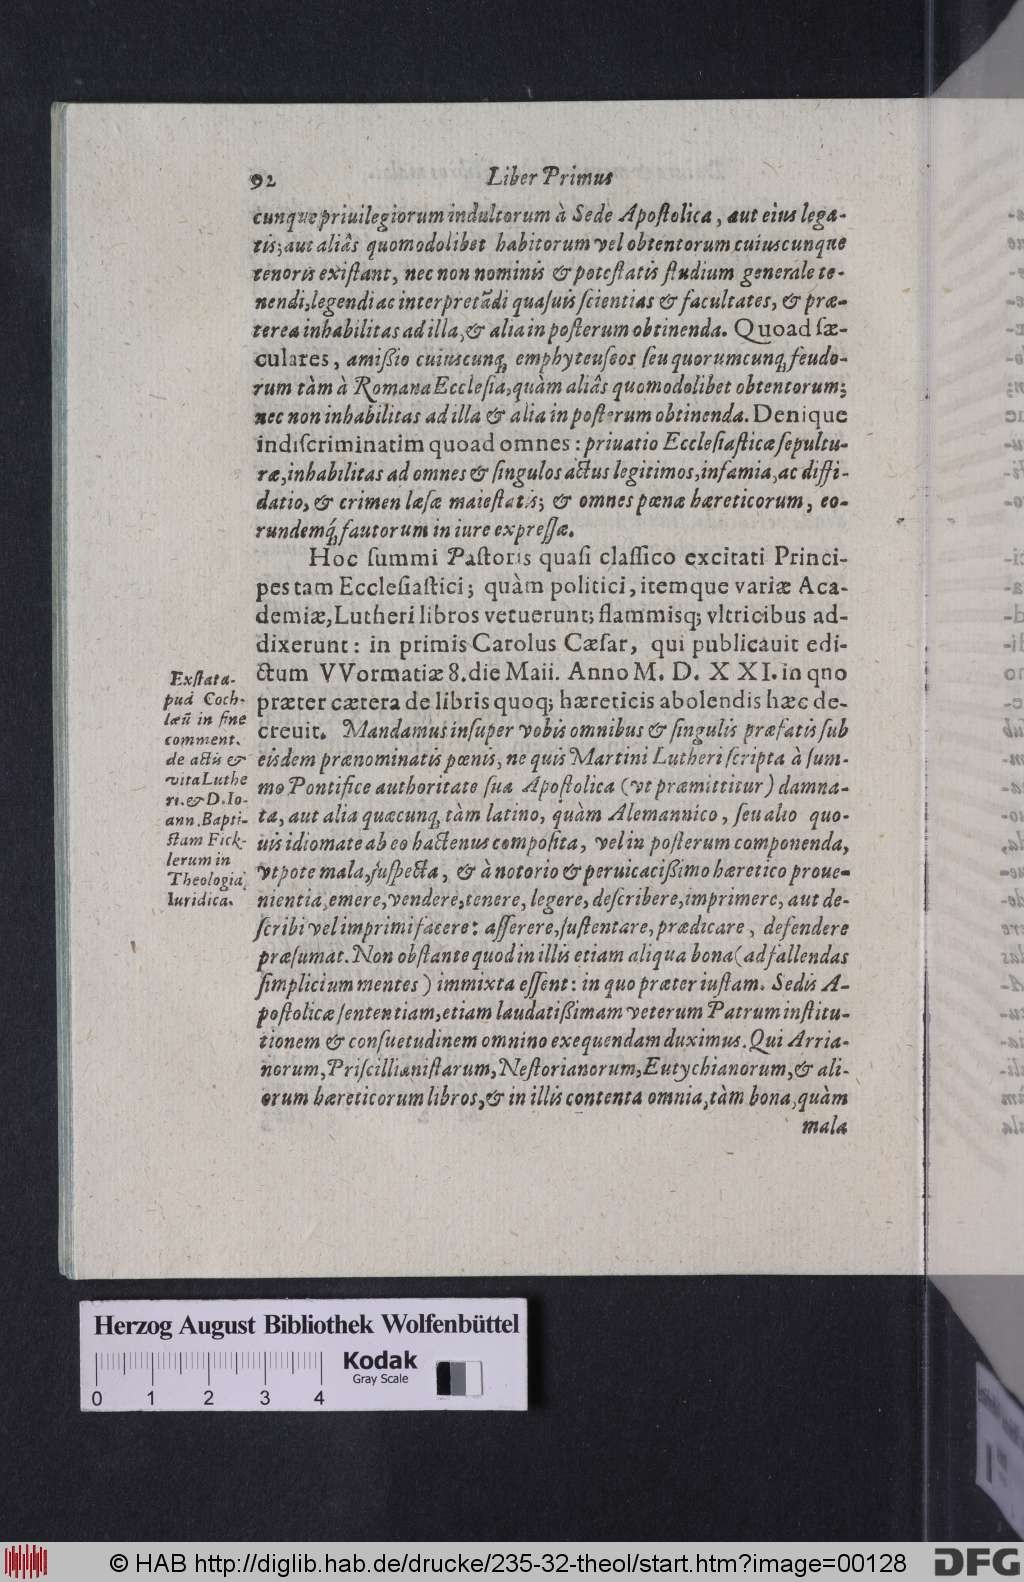 92 Liber Primus
cunque priuilegiorum indultorum à Sede Apostolica, aut eius lega-
tis; aut aliâs quomodolibet habitorum vel obtentorum cuiuscunque
tenoris existant, nec non nominis & potestatis studium generale te-
nendi, legendi ac interpretãdi quasuis scientias & facultates, & præ-
terea inhabilitas ad illa, & alia in posterum obtinenda. Quoad sæ-
culares, amißio cuiuscunq; emphyteuseos seu quorumcunq; feudo-
rum tàm à Romana Ecclesia, quàm aliâs quomodolibet obtentorum;
nec non inhabilitas ad illa & alia in posterum obtinenda. Denique
indiscriminatim quoad omnes: priuatio Ecclesiasticæ sepultu-
ræ, inhabilitas ad omnes & singulos actus legitimos, infamia, ac diffi-
datio, & crimen læsæ maiestatis; & omnes pœnæ hæreticorum, eo-
rundemq́; fautorum in iure expressæ.
Hoc summi Pastoris quasi classico excitati Princi-
pes tam Ecclesiastici; quàm politici, itemque variæ Aca-
demiæ, Lutheri libros vetuerunt; flammisq; vltricibus ad-
dixerunt: in primis Carolus Cæsar, qui publicauit edi-
ctum VVormatiæ 8. die Maii. Anno M. D. XXI. in qno
præter cætera de libris quoq; hæreticis abolendis hæc de-
creuit. Mandamus insuper vobis omnibus & singulis præfatis sub
eisdem prænominatis pœnis, ne quis Martini Lutheri scripta à sum-
mo Pontifice authoritate sua Apostolica (vt præmittitur) damna-
ta, aut alia quæcunq; tàm latino, quàm Alemannico, seu alio quo-
uis idiomate ab eo hactenus composita, vel in posterum componenda,
vtpote mala, suspecta, & à notorio & peruicacißimo hæretico proue-
nientia, emere, vendere, tenere, legere, describere, imprimere, aut de-
scribi vel imprimi facere: asserere, sustentare, prædicare, defendere
præsumat. Non obstante quod in illis etiam aliqua bona (ad fallendas
simplicium mentes) immixta essent: in quo præter iustam. Sedis A-
postolicæ sententiam, etiam laudatißimam veterum Patrum institu-
tionem & consuetudinem omnino exequendam duximus. Qui Arria-
norum, Priscillianistarum, Nestorianorum, Eutychianorum, & ali-
orum hæreticorum libros, & in illis contenta omnia, tàm bona, quàm
mala
Exstat a-
pud Coch-
læũ in fine
comment.
de actis &
vita Luthe
ri. & D. Io-
ann. Bapti-
stam Fick-
lerum in
Theologia
Iuridica.
Herzog August Bibliothek Wolfenbüttel
Kodak
Gray Scale
0 1 2 3 4
© HAB http://diglib.hab.de/drucke/235-32-theol/start.htm?image=00128
DFG